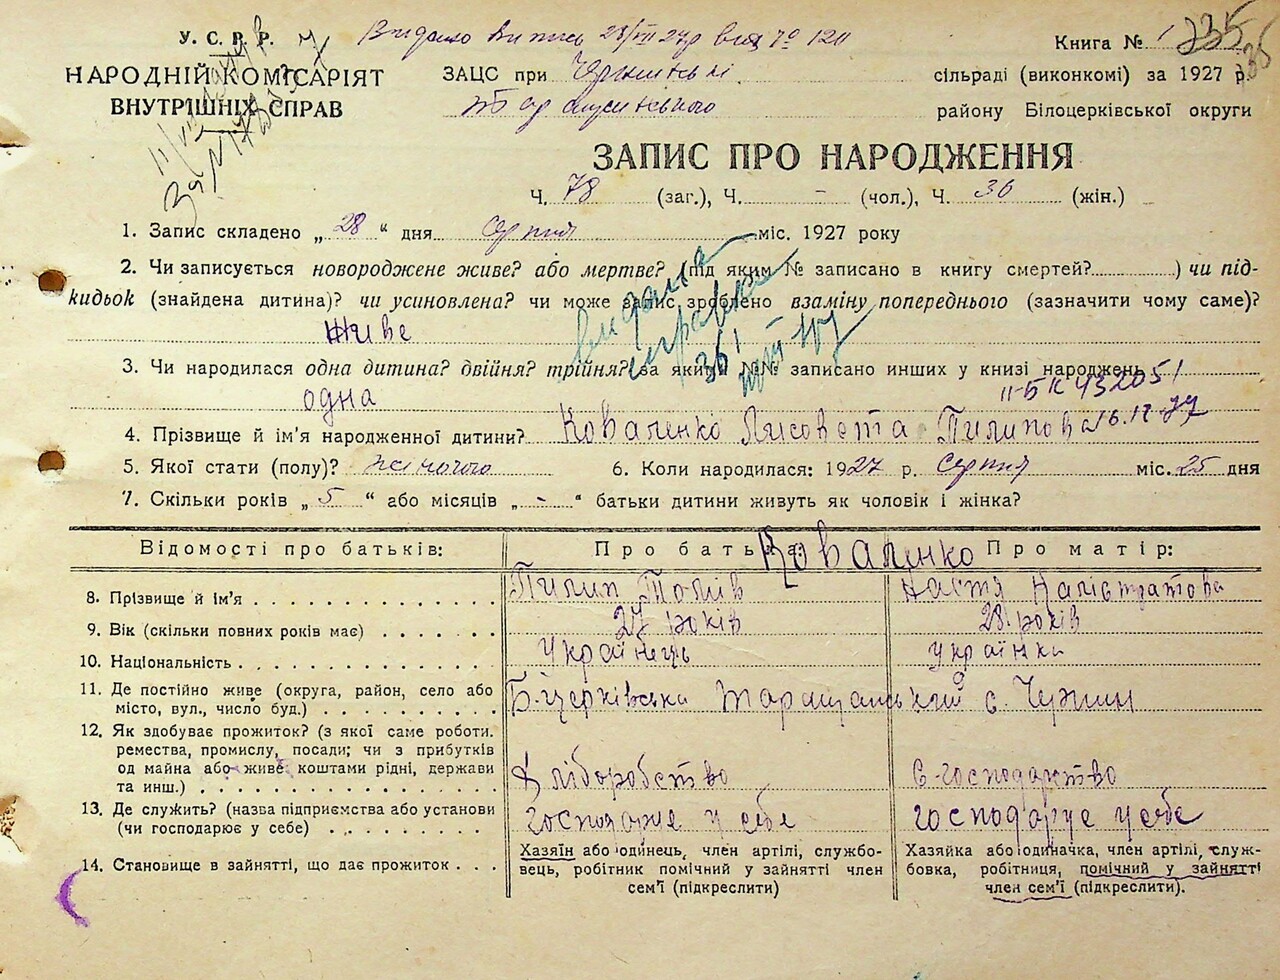 У. С. Р. Р.
Видано випись 28/VIII 27р вид № 120
Книга № 1 235
НАРОДНІЙ КОМІСАРІЯТ
ВНУТРІШНІХ СПРАВ
ЗАЦС при сільраді (виконкомі) за 1927 р.
району Білоцерківської округи
ЗАПИС ПРО НАРОДЖЕННЯ
Ч. 78 (заг.), Ч. - (чол.), Ч. 36 (жін.)
1. Запис складено „ 28 “ дня серпня міс. 1927 року
2. Чи записується новороджене живе? або мертве? (під яким № записано в книгу смертей?) чи під-
кидьок (знайдена дитина)? чи усиновлена? чи може запис зроблено взаміну попереднього (зазначити чому саме)?
живе
видана
справка
3. Чи народилася одна дитина? двійня? трійня? за якими №№ записано инших у книзі народжень
одна
II-БК 432051
16.12.77
4. Прізвище й ім'я народженної дитини? Коваленко Лисовета Пилипова
5. Якої стати (полу)? жіночого 6. Коли народилася: 1927 р. серпня міс. 25 дня
7. Скільки років „ 5 “ або місяців „ - “ батьки дитини живуть як чоловік і жінка?
Відомості про батьків: Про батька: Про матір:
Коваленко
8. Прізвище й ім'я Пилип Томів Настя Калістратова
9. Вік (скільки повних років має) 27 років 28 років
10. Національність Українець українка
11. Де постійно живе (округа, район, село або
місто, вул., число буд.) Б-церківська Таращанський с. Чернин
12. Як здобуває прожиток? (з якої саме роботи.
ремества, промислу, посади; чи з прибутків
од майна або живе коштами рідні, держави
та инш.) Хліборобство с-господарство
13. Де служить? (назва підприємства або установи
(чи господарює у себе) господарює у себе господарує у себе
14. Становище в зайнятті, що дає прожиток
Хазяїн або одинець, член артілі, службо-
вець, робітник помічний у зайнятті член
сем'ї (підкреслити)
Хазяйка або одиначка, член артілі, служ-
бовка, робітниця, помічний у зайнятті
член сем'ї (підкреслити).